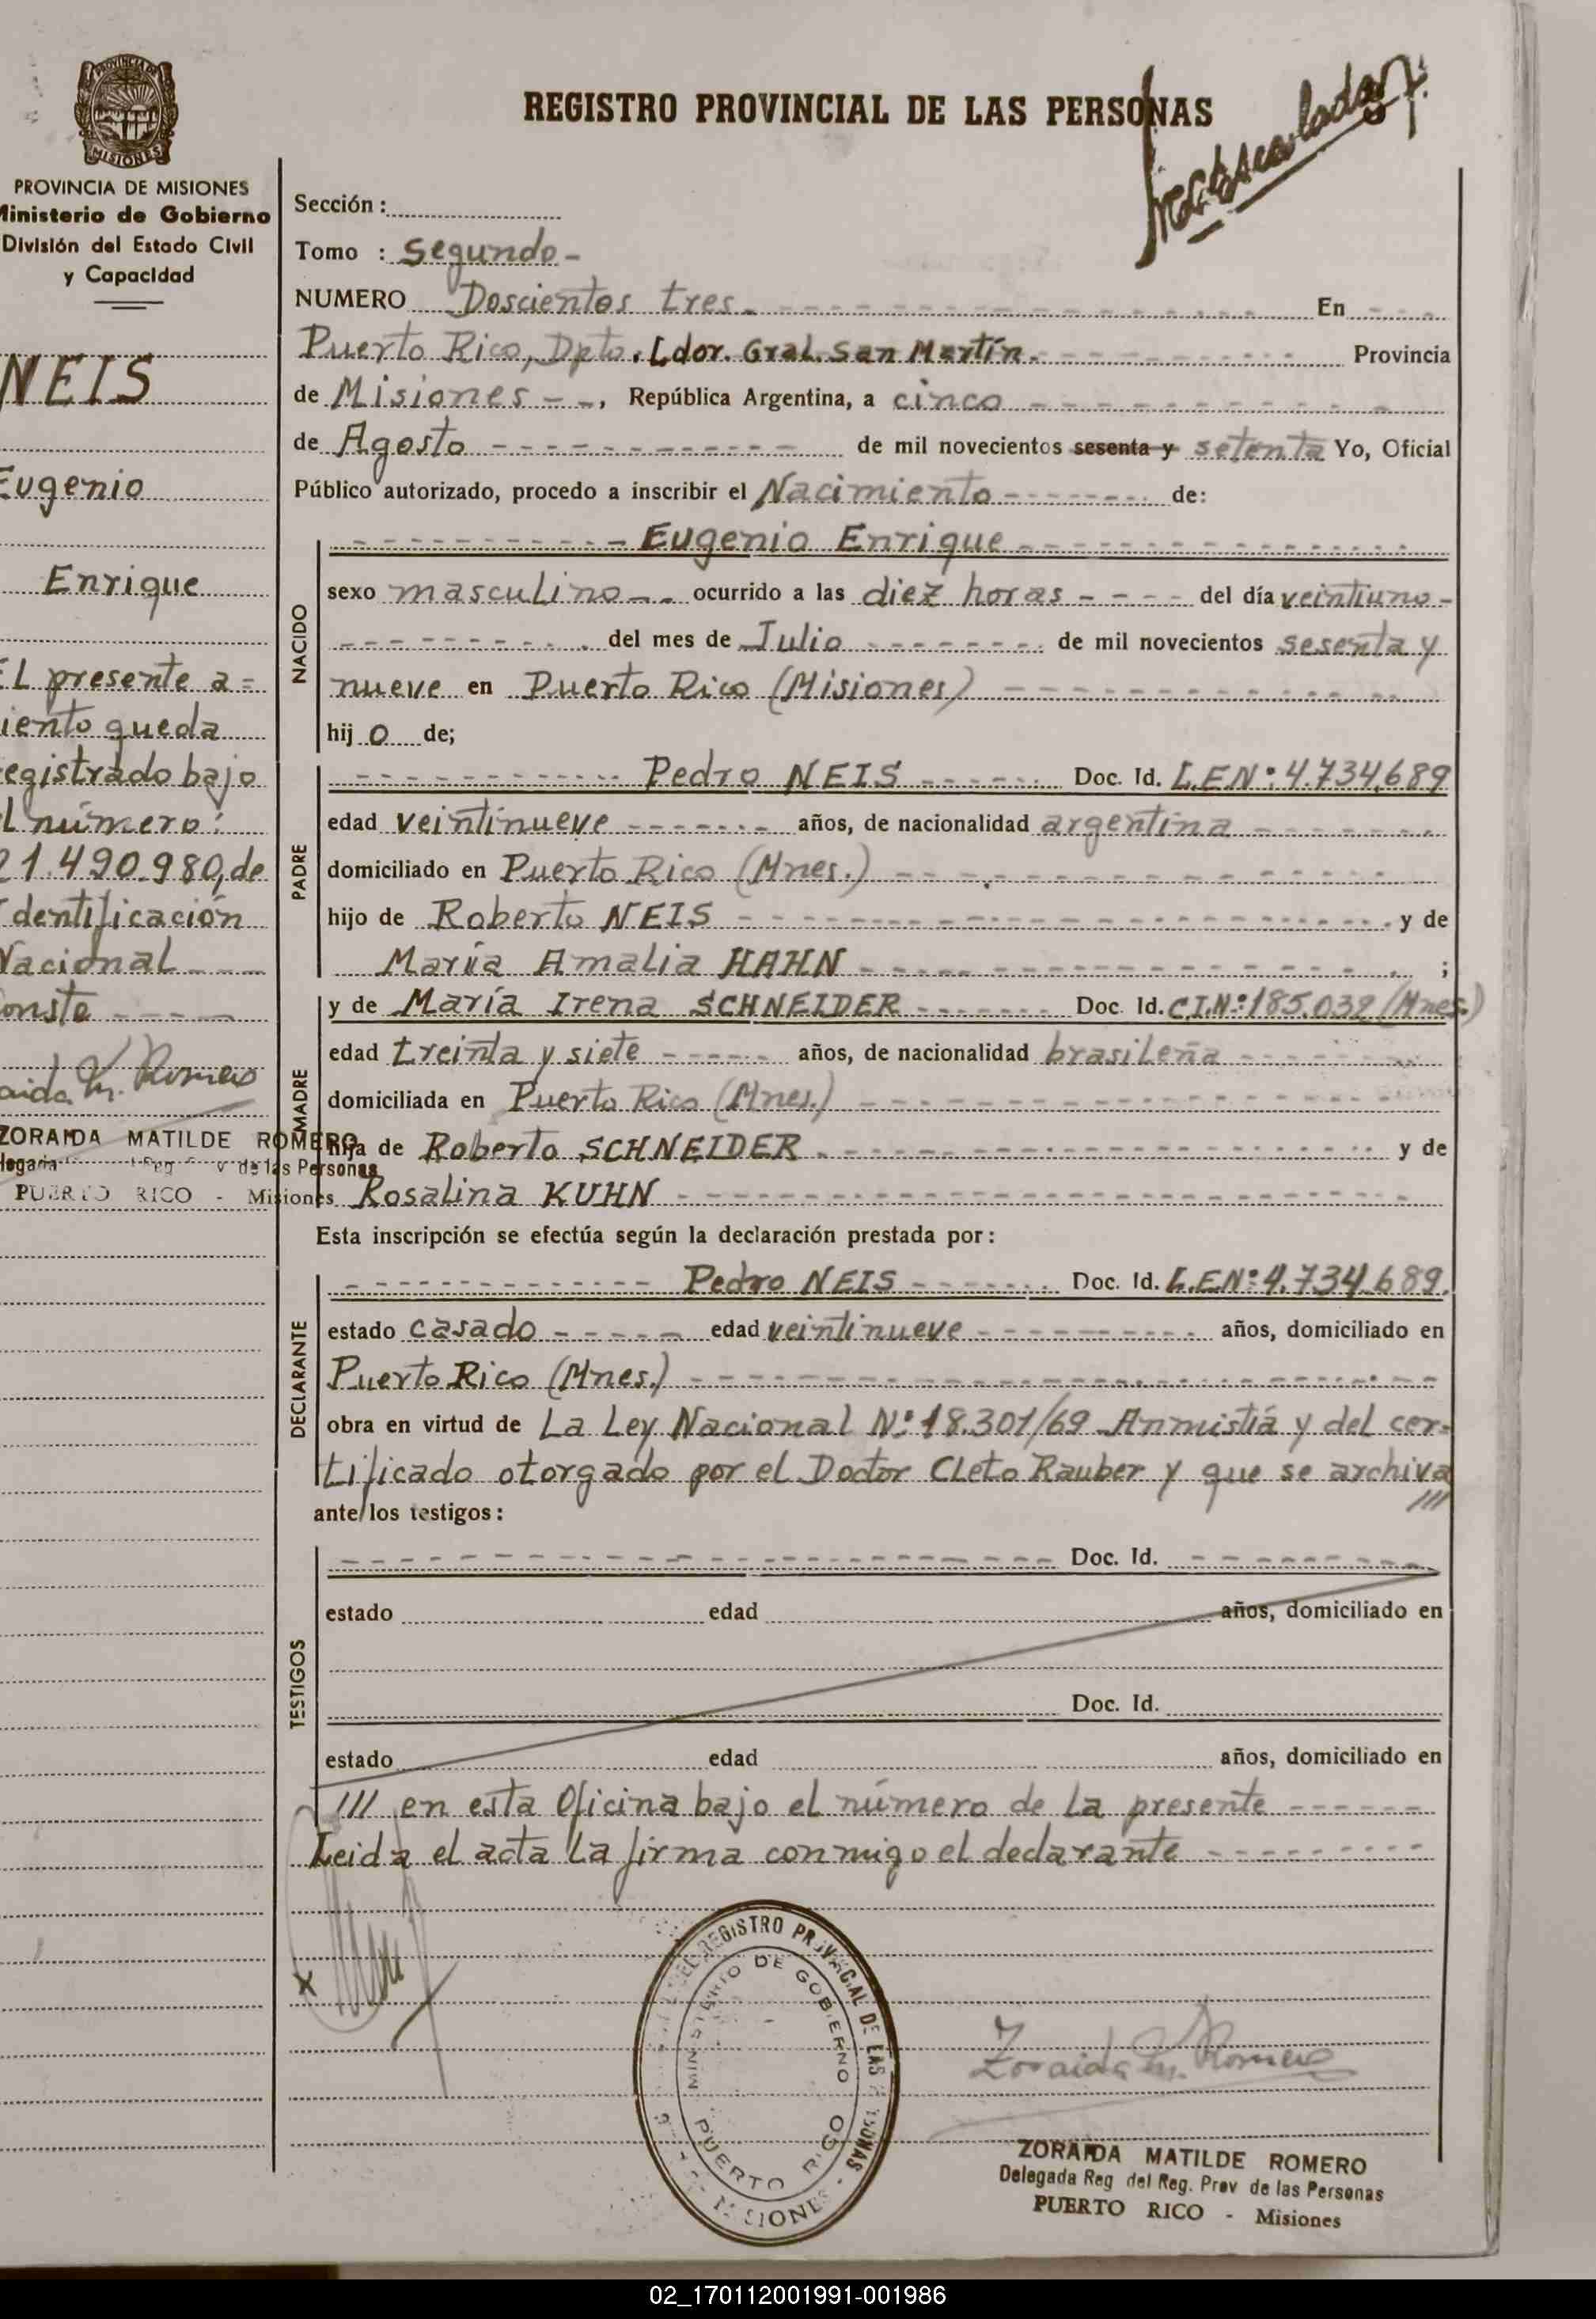 PROVINCIA DE MISIONES
Ministerio de Gobierno
División del Estado Civil
y Capacidad
NEIS
Eugenio
Enrique
EL presente a=
iento queda
egistrado bajo
L número:
21.490.980, de
Identificación
Nacional
onste
aida M. Romero
ZORAIDA MATILDE ROMERO
PUERTO RICO - Misiones
REGISTRO PROVINCIAL DE LAS PERSONAS
Sección :
Tomo : Segundo -
NUMERO Doscientos tres. En
Puerto Rico, Dpto. Ldor. Gral. San Martín. Provincia
de Misiones - -, República Argentina, a cinco
de Agosto de mil novecientos sesenta y setenta Yo, Oficial
Público autorizado, procedo a inscribir el Nacimiento de:
NACIDO
Eugenio Enrique
sexo masculino ocurrido a las diez horas del día veintiuno -
del mes de Julio de mil novecientos sesenta y
nueve en Puerto Rico (Misiones)
hij o de;
PADRE
Pedro NEIS Doc. Id. L.E.Nº: 4.734.689
edad veintinueve años, de nacionalidad argentina
domiciliado en Puerto Rico (Mnes.)
hijo de Roberto NEIS y de
María Amalia HAHN ;
MADRE
y de María Irena SCHNEIDER Doc. Id. C.I.Nº: 185.032 (Mnes.)
edad treinta y siete años, de nacionalidad brasileña
domiciliada en Puerto Rico (Mnes.)
hija de Roberto SCHNEIDER y de
Rosalina KUHN
Esta inscripción se efectúa según la declaración prestada por :
DECLARANTE
Pedro NEIS Doc. Id. L.E.Nº: 4.734.689.
estado casado edad veintinueve años, domiciliado en
Puerto Rico (Mnes.)
obra en virtud de La Ley Nacional Nº 18.301/69 Anmistiá y del cer=
tificado otorgado por el Doctor Cleto Rauber y que se archiva
///
ante los testigos :
TESTIGOS
Doc. Id.
estado edad años, domiciliado en
Doc. Id.
estado edad años, domiciliado en
/// en esta Oficina bajo el número de La presente
Leida el acta la firma conmigo el declarante
x
REGISTRO PROVINCIAL DE LAS PERSONAS - MISIONES
MINISTERIO DE GOBIERNO
PUERTO RICO
Zoraida M. Romero
ZORAIDA MATILDE ROMERO
Delegada Reg del Reg. Prov de las Personas
PUERTO RICO - Misiones
02_170112001991-001986